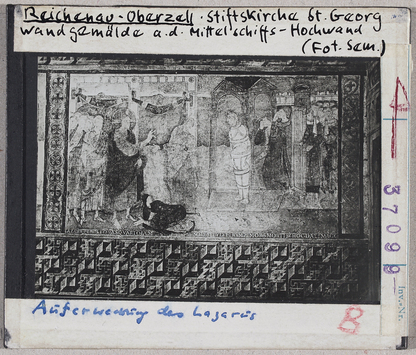 Reichenau-Oberzell. Stiftskirche St. Georg
Wandgemälde a.d. Mittelschiffs-Hochwand
(Fot. Sem.)
37099
Inv.-Nr.
Auferweckung des Lazarus
B